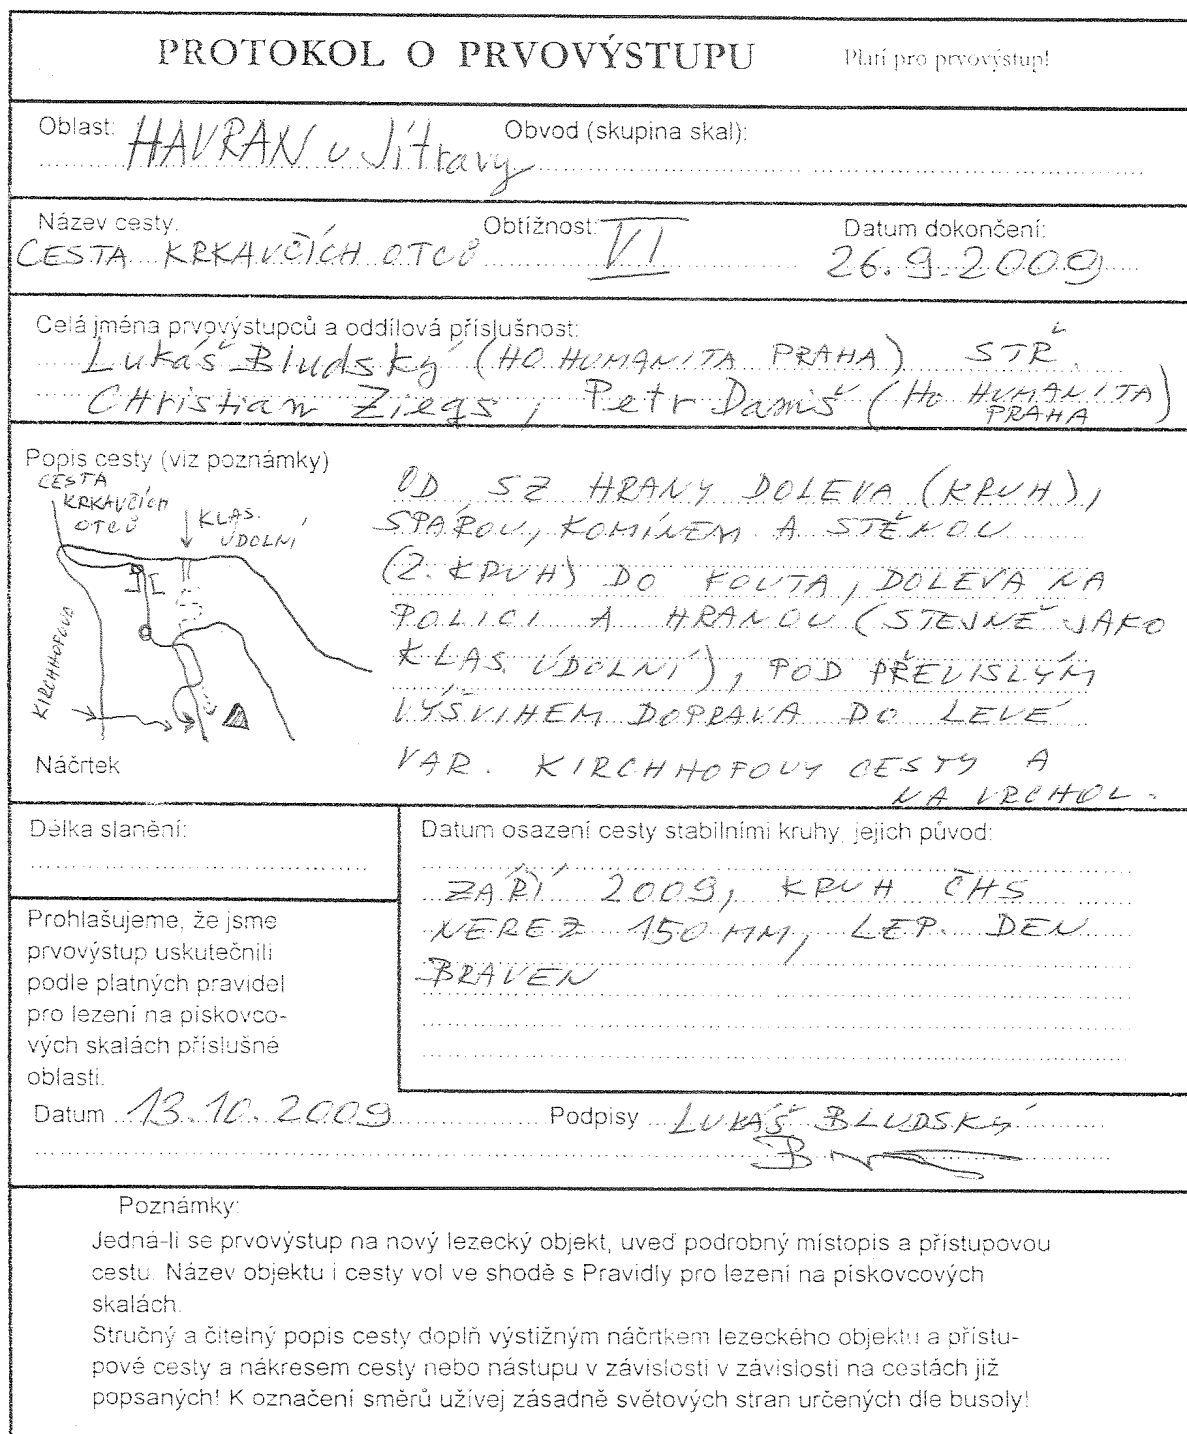 PROTOKOL O PRVOVÝSTUPU
Platí pro prvovýstup!
Oblast: HAVRAN u Jítravy
Obvod (skupina skal):
Název cesty.
CESTA KRKAVČÍCH OTCŮ
Obtížnost: VI
Datum dokončení:
26.9.2009
Celá jména prvovýstupců a oddílová příslušnost:
Lukáš Bludský (HO HUMANITA PRAHA) STŘ.
CHristian Ziegs, Petr Damiš (HO HUMANITA
PRAHA)
Popis cesty (viz poznámky)
CESTA
KRKAVČÍCH
OTCŮ
KLAS.
ÚDOLNÍ
KIRCHHOFOVA
Náčrtek
OD SZ HRANY DOLEVA (KRUH),
SPÁROU, KOMÍNEM A STĚNOU
(2. KRUH) DO KOUTA, DOLEVA NA
POLICI A HRANOU (STEJNĚ JAKO
KLAS. ÚDOLNÍ), POD PŘEVISLÝM
VÝŠVIHEM DOPRAVA DO LEVÉ
VAR. KIRCHHOFOVY CESTY A
NA VRCHOL.
Délka slanění:
Datum osazení cesty stabilními kruhy, jejich původ:
ZÁŘÍ 2009, KRUH ČHS
NEREZ 150 MM, LEP. DEN
BRAVEN
Prohlašujeme, že jsme
prvovýstup uskutečnili
podle platných pravidel
pro lezení na pískovco-
vých skalách příslušné
oblasti.
Datum 13.10.2009
Podpisy LUKÁŠ BLUDSKÝ
Poznámky:
Jedná-li se prvovýstup na nový lezecký objekt, uveď podrobný místopis a přístupovou
cestu. Název objektu i cesty vol ve shodě s Pravidly pro lezení na pískovcových
skalách.
Stručný a čitelný popis cesty doplň výstižným náčrtkem lezeckého objektu a přístu-
pové cesty a nákresem cesty nebo nástupu v závislosti v závislosti na cestách již
popsaných! K označení směrů užívej zásadně světových stran určených dle busoly!